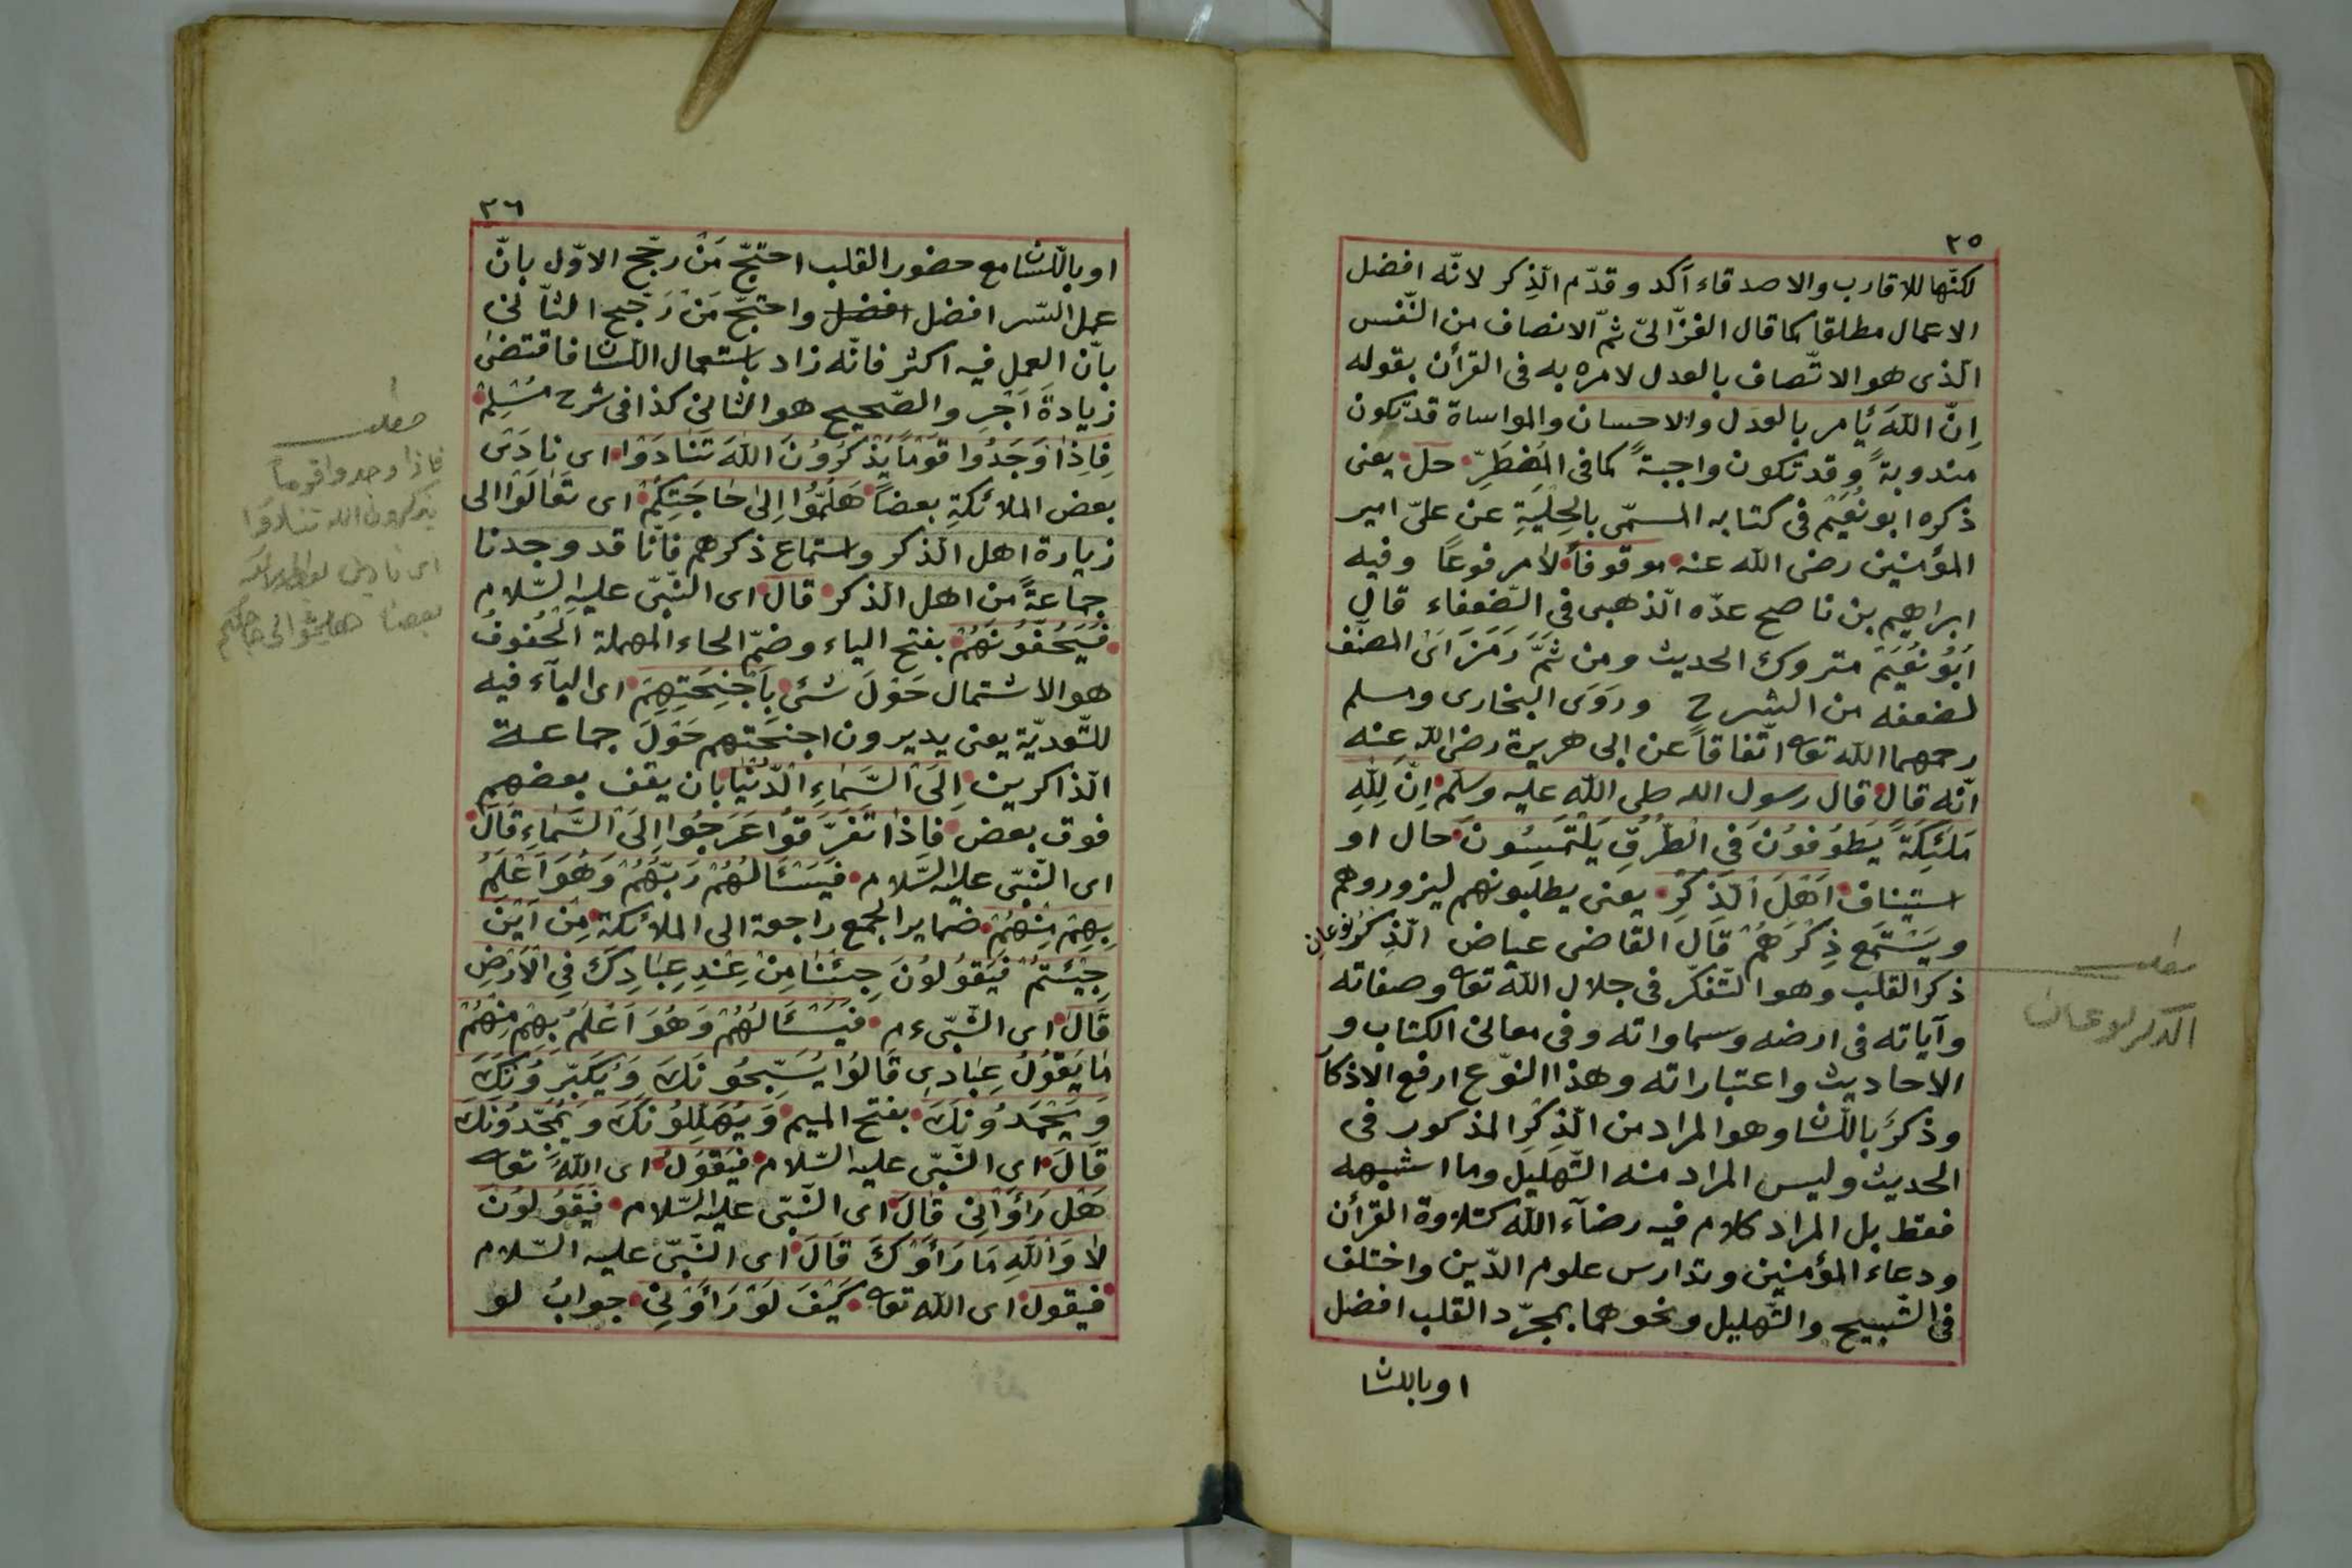 ٢٥
لكنّها للاقارب والاصدقاء آكد وقدّم الّذِكر لانّه افضل
الاعمال مطلقا كما قال الغزّاليّ ثمّ الانصاف من النّفس
الّذى هو الاتّصاف بالعدل لامره به فى القرأن بقوله
اِنّ اللّٰهَ يأمر بالعدل والاحسان والمواساة قد تكون
مندوبةً وقد تكون واجبةً كما فى المُضْطَرِّ حل يعنى
ذكره ابو نُعَيْم فى كتابه المسمّى بالحِلْيَةِ عن علىّ امير
المؤمنين رضى اللّٰه عنه موقوفاً لا مرفوعًا وفيه
ابراهيم بن ناصح عدّه الّذهبى فى الضّعفاء قال
اَبُو نُعَيْمَ متروك الحديث ومن ثَمَّ رَمَزَ اَىْ المصنّف
لضعفه من الشرح ورَوَى البخارى ومسلم
رحمهما اللّٰه تعا اتّفاقاً عن ابى هريرة رضى اللّٰه عنه
انّه قال قال رسول اللّٰه صلى اللّٰه عليه وسلّم اِنّ لِلّٰهِ
مَلٰئِكَةً يَطُوُفوُنَ فى الطُّرُقِ يَلْتَمِسُونَ حال او
استيناف اَهْلَ الّذِكْرِ يعنى يطلبونهم ليزوروهم
ويَسْتَمع ذِكْرَهُمْ قَالَ القاضى عياض الّذِكْر نوعان
ذكر القلب وهو التّفكّر فى جلال اللّٰه تعا وصفاته
وآياته فى ارضه وسماواته وفى معانى الكتاب و
الاحاديث واعتباراته وهذا النّوع ارفع الاذكا
وذكرَ باللّسا وهو المراد من الّذِكْرِ المذكور فى
الحديث وليس المراد منه التّهليل وما اشبهه
فقط بل المراد كلام فيه رضآء اللّٰه كتلاوة القرأن
ودعاء المؤمنين وتدارس علوم الدّين واختلف
فى التّسبيح والتّهليل ونحوهما بمجرّد القلب افضل
او باللسا
مطلب
الذكر نوعان
٢٦
او باللّسا مع حضور القلب احتجّ مَنْ رجّح الاوّل بانّ
عمل السّر افضل افضل واحتجّ مَنْ رَجّح الثّانى
بانّ العمل فيه اكثر فانّه زاد باستعمال اللّسان فاقتضى
زيادةَ اَجْرِ والصّحيح هو الثانى كذا فى شرح مُسْلِم
فَاِذَا وَجَدُوا قَوْمًا يَذْكُرُوُنَ اللّٰهَ تَنَادَوْا اى نادَىٰ
بعض الملائكةِ بعضاً هَلُمُّوا اِلىٰ حَاجَتِكُمْ اى تَعَالَوْا الى
زيارة اهل الّذكر واستماع ذكرهم فانّا قد وجدنا
جماعةً من اهل الّذكر قال اى النّبىّ عليه السّلام
فَيَحُفّوُنَهُمْ بفتح الياء وضمّ الحاء المهملة الحُفوفُ
هو الاشتمال حَوْلَ شئ بِاَجْنِحَتِهِمْ اى البآء فيه
للتّعديّة يعنى يديرون اجنحتهم حَوْلَ جماعة
الّذاكرين اِلَى السَّمَاءِ الدُّنْيَا بان يقف بعضهم
فوق بعض فَاِذَا تَفَرَّقوُا عَرَجُوا اِلَى السَّمَاءِ قَالَ
اى النّبىّ عليه السَّلام فَيَسْئَالُهُمْ رَبّهُمْ وَهُوَ اَعْلَمُ
بِهِمْ مِنْهُمْ ضماير الجمع راجعة الى الملائكة مِنْ اَيْنَ
جِئْتُمْ فَيَقُولوُنَ جِئْنَا مِنْ عِنْدِ عِبَادِكَ فِى الْاَرْضِ
قَالَ اى النّبىّ ءم فَيَسْئَالُهُمْ وَهُوَ اَعْلَمُ بِهِمْ مِنْهُمْ
مَا يَقوُلُ عِبَادِى قَالوُا يُسَبِّحُونَكَ وَيُكَبِّروُنَكَ
وَيَحْمَدوُنَكَ بفتح الميم وَيُهَلِّلوُنَكَ وَيُمَجِّدوُنَكَ
قَالَ اى النّبىّ عليه السّلام فَيَقوُلُ اى اللّٰهُ تعا
هَلْ رَأَوْنِى قَالَ اى النّبىّ عليه السّلام فَيَقُولوُنَ
لَا وَاللّٰهِ مَا رَأَوْكَ قَالَ اى النّبىّ عليه السّلام
فيقول اى اللّٰه تعا كَيْفَ لَوْ رَأَوْنِى جوابُ لو
مطلب
فاذا وجدوا قوماً
يذكرون اللّٰه تنادَوْا
اى نادى بعض الملائكة
بعضا هلمّوا الى حاجتكم